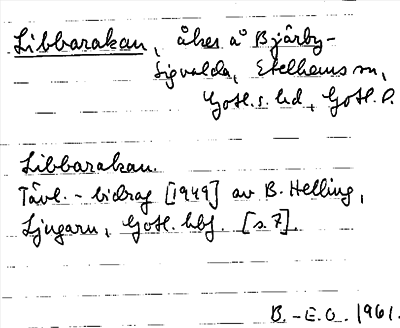 Libbarakan, åker å Bjärby-
Sigvalda, Etelhems sn,
Gotl. s. hd, Gotl. l.
Libbarakan.
Tävl.-bidrag [1949] av B. Helling,
Ljugarn, Gotl. hbf. [s. 7].
B.-E. O. 1961.